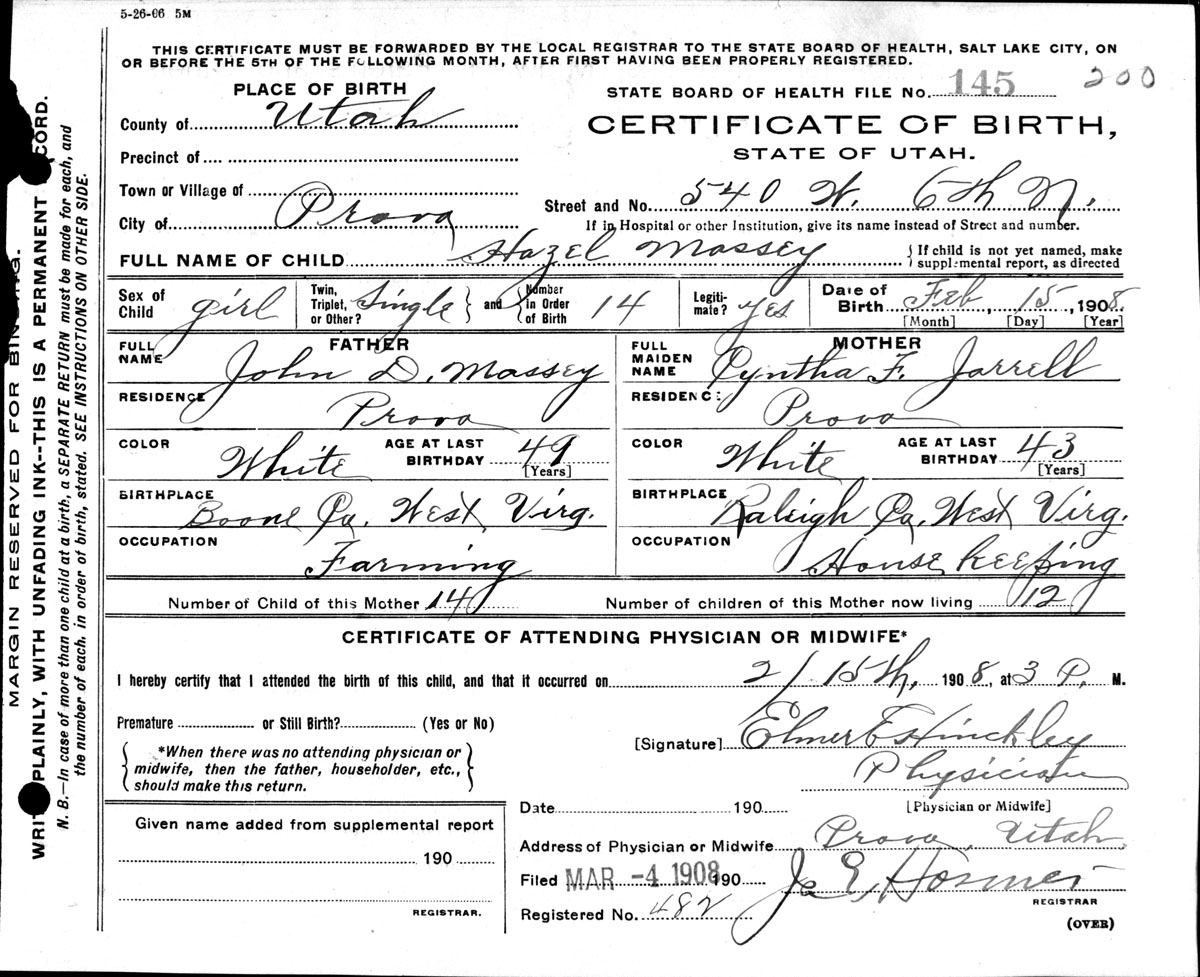 5-26-06 5M
THIS CERTIFICATE MUST BE FORWARDED BY THE LOCAL REGISTRAR TO THE STATE BOARD OF HEALTH, SALT LAKE CITY, ON
OR BEFORE THE 5TH OF THE FOLLOWING MONTH, AFTER FIRST HAVING BEEN PROPERLY REGISTERED.
PLACE OF BIRTH
STATE BOARD OF HEALTH FILE No. 145 200
County of Utah
CERTIFICATE OF BIRTH,
STATE OF UTAH.
Precinct of
Town or Village of
City of Provo
Street and No. 540 W. 6th N.
If in Hospital or other Institution, give its name instead of Street and number.
FULL NAME OF CHILD Hazel Massey { If child is not yet named, make
supplemental report, as directed
Sex of Child girl Twin, Triplet, or Other? Single } and { Number in Order of Birth 14 Legitimate? yes Date of Birth Feb, 15, 1908.
[Month] [Day] [Year]
FATHER
FULL NAME John D. Massey
RESIDENCE Provo
COLOR White AGE AT LAST BIRTHDAY 49
[Years]
BIRTHPLACE Boone Co, West Virg.
OCCUPATION Farming
MOTHER
FULL MAIDEN NAME Cyntha F. Jarrell
RESIDENCE Provo
COLOR White AGE AT LAST BIRTHDAY 43
[Years]
BIRTHPLACE Raleigh Co, West Virg.
OCCUPATION House keeping
Number of Child of this Mother 14 Number of children of this Mother now living 12
CERTIFICATE OF ATTENDING PHYSICIAN OR MIDWIFE*
I hereby certify that I attended the birth of this child, and that it occurred on 2/15th, 1908, at 3 P. M.
Premature or Still Birth? (Yes or No)
{ *When there was no attending physician or
midwife, then the father, householder, etc.,
should make this return. }
[Signature] Elmer E Hinckley
Physician
[Physician or Midwife]
Date 190
Given name added from supplemental report
190
REGISTRAR.
Address of Physician or Midwife Provo, Utah.
Filed MAR -4 1908 190 E. Hosmer
REGISTRAR
Registered No. 482
(OVER)
MARGIN RESERVED FOR BINDING.
WRITE PLAINLY, WITH UNFADING INK--THIS IS A PERMANENT RECORD.
N. B.—In case of more than one child at a birth, a SEPARATE RETURN must be made for each, and
the number of each, in order of birth, stated. SEE INSTRUCTIONS ON OTHER SIDE.